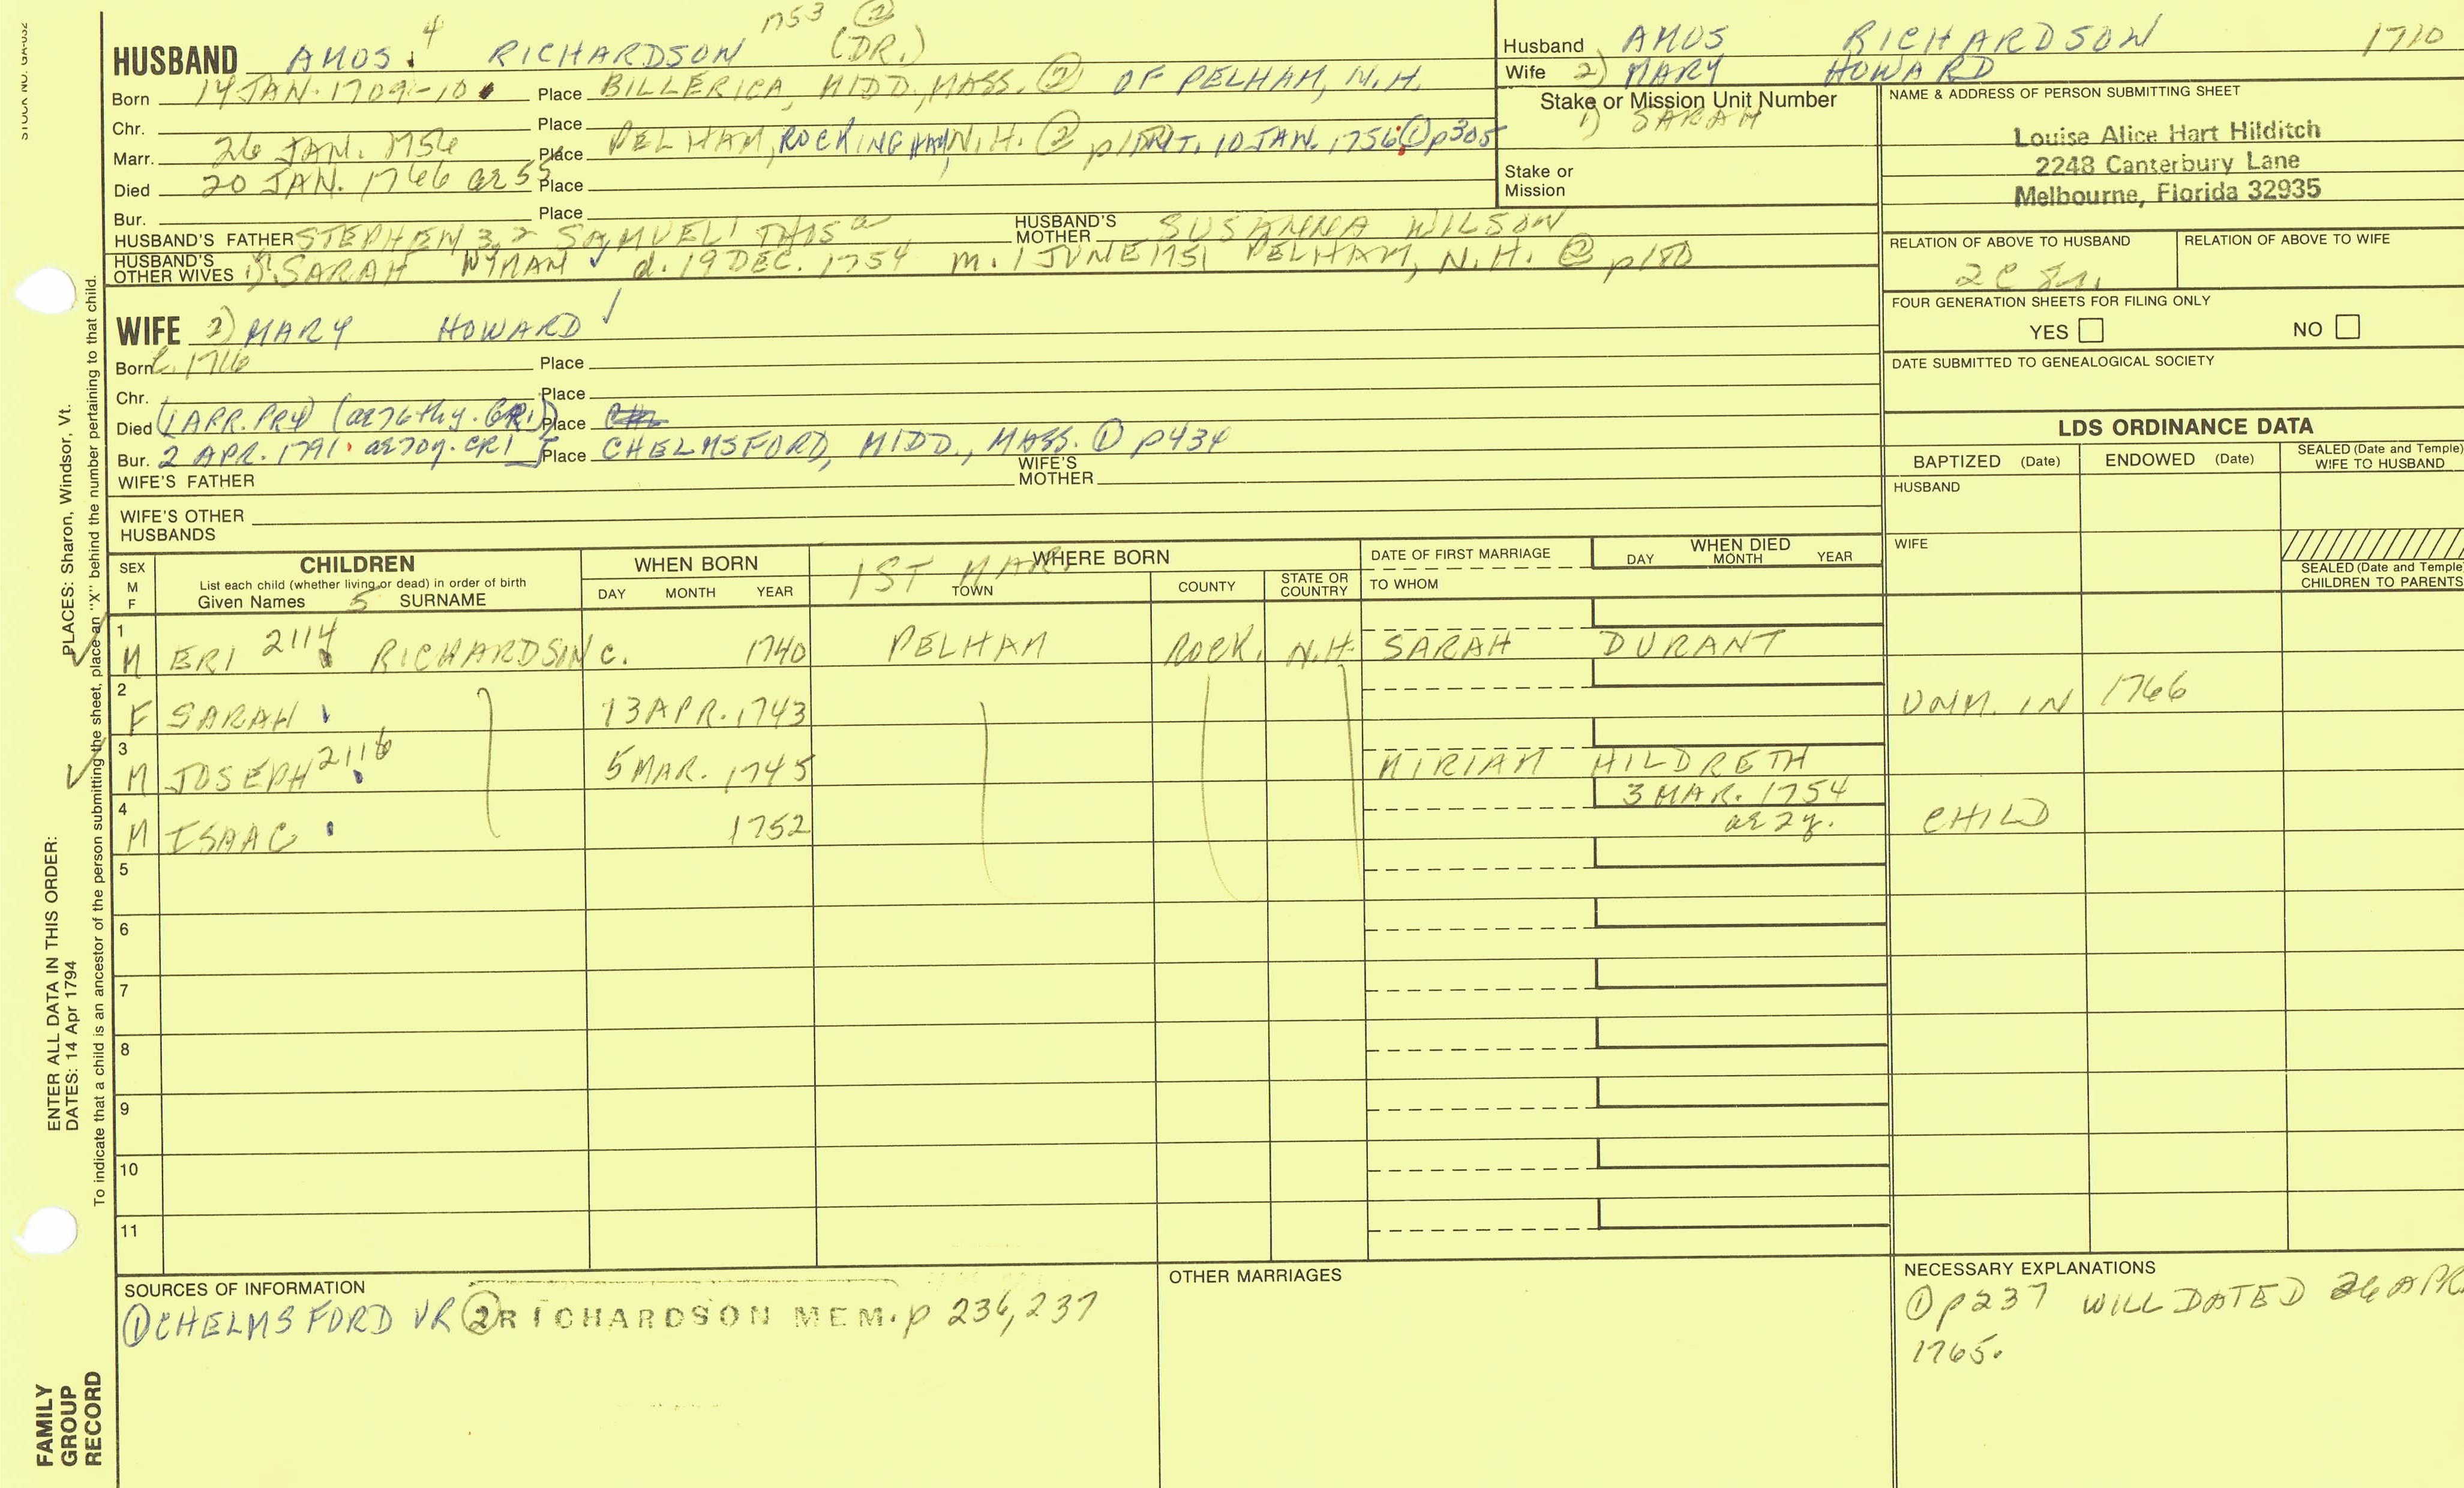 STOCK NO. GA-032
1753 ②
HUSBAND AMOS 4 RICHARDSON (DR.)
Born 14 JAN. 1709-10 Place BILLERICA, MIDD., MASS. ② OF PELHAM, N.H.
Chr. Place
Marr. 26 JAN. 1756 Place PELHAM, ROCKINGHAM, N.H. ② INT. 10 JAN. 1756 ① p305
Died 20 JAN. 1766 ae 55 Place
Bur. Place
HUSBAND'S FATHER STEPHEN 3, 2 SAMUEL 1 THOS HUSBAND'S MOTHER SUSANNA WILSON
HUSBAND'S OTHER WIVES 1) SARAH WYMAN d. 19 DEC. 1754 m. 1 JUNE 1751 PELHAM, N.H. ② p180
WIFE 2) MARY HOWARD
Born c. 1716 Place
Chr. Place
Died (1 APR. PR4) (ae 76thy. GR1) Place
Bur. 2 APR. 1791 ae 70y. CR1 Place CHELMSFORD, MIDD., MASS. ① p434
WIFE'S FATHER WIFE'S MOTHER
WIFE'S OTHER HUSBANDS
Husband AMOS RICHARDSON 1710
Wife 2) MARY HOWARD
Stake or Mission Unit Number
1) SARAH
Stake or Mission
NAME & ADDRESS OF PERSON SUBMITTING SHEET
Louise Alice Hart Hilditch
2248 Canterbury Lane
Melbourne, Florida 32935
RELATION OF ABOVE TO HUSBAND RELATION OF ABOVE TO WIFE
2C
FOUR GENERATION SHEETS FOR FILING ONLY
YES NO
DATE SUBMITTED TO GENEALOGICAL SOCIETY
LDS ORDINANCE DATA
BAPTIZED (Date) ENDOWED (Date) SEALED (Date and Temple) WIFE TO HUSBAND
HUSBAND
WIFE
SEALED (Date and Temple) CHILDREN TO PARENTS
SEX M F
CHILDREN
List each child (whether living or dead) in order of birth
Given Names 5 SURNAME
WHEN BORN
DAY MONTH YEAR
1ST MAR.
WHERE BORN
TOWN COUNTY STATE OR COUNTRY
DATE OF FIRST MARRIAGE
TO WHOM
WHEN DIED
DAY MONTH YEAR
1 M ERI 2114 RICHARDSON c. 1740 PELHAM ROCK. N.H. SARAH DURANT
2 F SARAH 13 APR. 1743 UNM. IN 1766
3 M JOSEPH 2116 5 MAR. 1745 MIRIAM HILDRETH
4 M ISAAC 1752 3 MAR. 1754 ae 2y. CHILD
5
6
7
8
9
10
11
SOURCES OF INFORMATION
① CHELMSFORD VR ② RICHARDSON MEM. p 236, 237
OTHER MARRIAGES
NECESSARY EXPLANATIONS
① p237 WILL DATED 26 APR.
1765.
ENTER ALL DATA IN THIS ORDER:
DATES: 14 Apr 1794 PLACES: Sharon, Windsor, Vt.
To indicate that a child is an ancestor of the person submitting the sheet, place an "X" behind the number pertaining to that child.
FAMILY
GROUP
RECORD